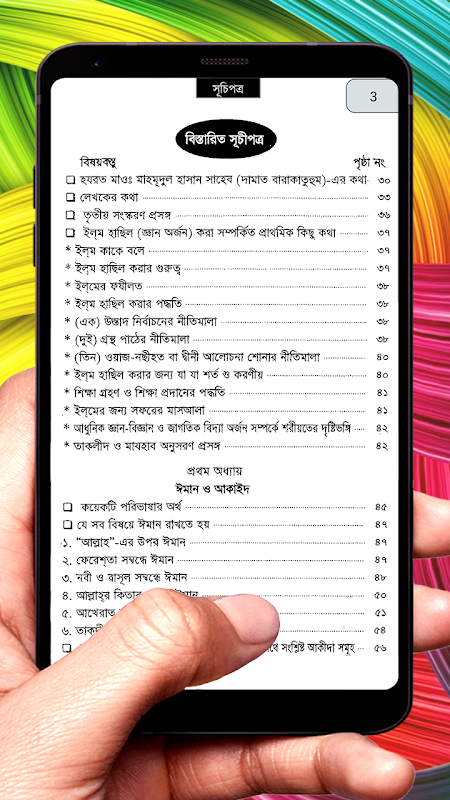 সূচিপত্র
3
বিস্তারিত সূচীপত্র
বিষয়বস্তু পৃষ্ঠা নং
❑ হযরত মাওঃ মাহমূদুল হাসান সাহেব (দামাত বারাকাতুহুম)-এর কথা ৩০
❑ লেখকের কথা ৩৩
❑ তৃতীয় সংস্করণ প্রসঙ্গ ৩৬
❑ ইল্‌ম হাছিল (জ্ঞান অর্জন) করা সম্পর্কিত প্রাথমিক কিছু কথা ৩৭
* ইল্‌ম কাকে বলে ৩৭
* ইল্‌ম হাছিল করার গুরুত্ব ৩৭
* ইল্‌মের ফযীলত ৩৮
* ইল্‌ম হাছিল করার পদ্ধতি ৩৮
* (এক) উস্তাদ নির্বাচনের নীতিমালা ৩৮
* (দুই) গ্রন্থ পাঠের নীতিমালা ৩৮
* (তিন) ওয়াজ-নছীহত বা দ্বীনী আলোচনা শোনার নীতিমালা ৪০
* ইল্‌ম হাছিল করার জন্য যা যা শর্ত ও করণীয় ৪০
* শিক্ষা গ্রহণ ও শিক্ষা প্রদানের পদ্ধতি ৪১
* ইল্‌মের জন্য সফরের মাসআলা ৪১
* আধুনিক জ্ঞান-বিজ্ঞান ও জাগতিক বিদ্যা অর্জন সম্পর্কে শরীয়তের দৃষ্টিভঙ্গি ৪২
* তাকলীদ ও মাযহাব অনুসরণ প্রসঙ্গ ৪২
প্রথম অধ্যায়
ঈমান ও আকাইদ
❑ কয়েকটি পরিভাষার অর্থ ৪৫
❑ যে সব বিষয়ে ঈমান রাখতে হয় ৪৭
১. “আল্লাহ”-এর উপর ঈমান ৪৭
২. ফেরেশ্‌তা সম্বন্ধে ঈমান ৪৭
৩. নবী ও রাসূল সম্বন্ধে ঈমান ৪৮
৪. আল্লাহ্‌র কিতাব ঈমান ৫০
৫. আখেরাত ৫১
৬. ৫৪
❑ সংশ্লিষ্ট আকীদা সমূহ ৫৬